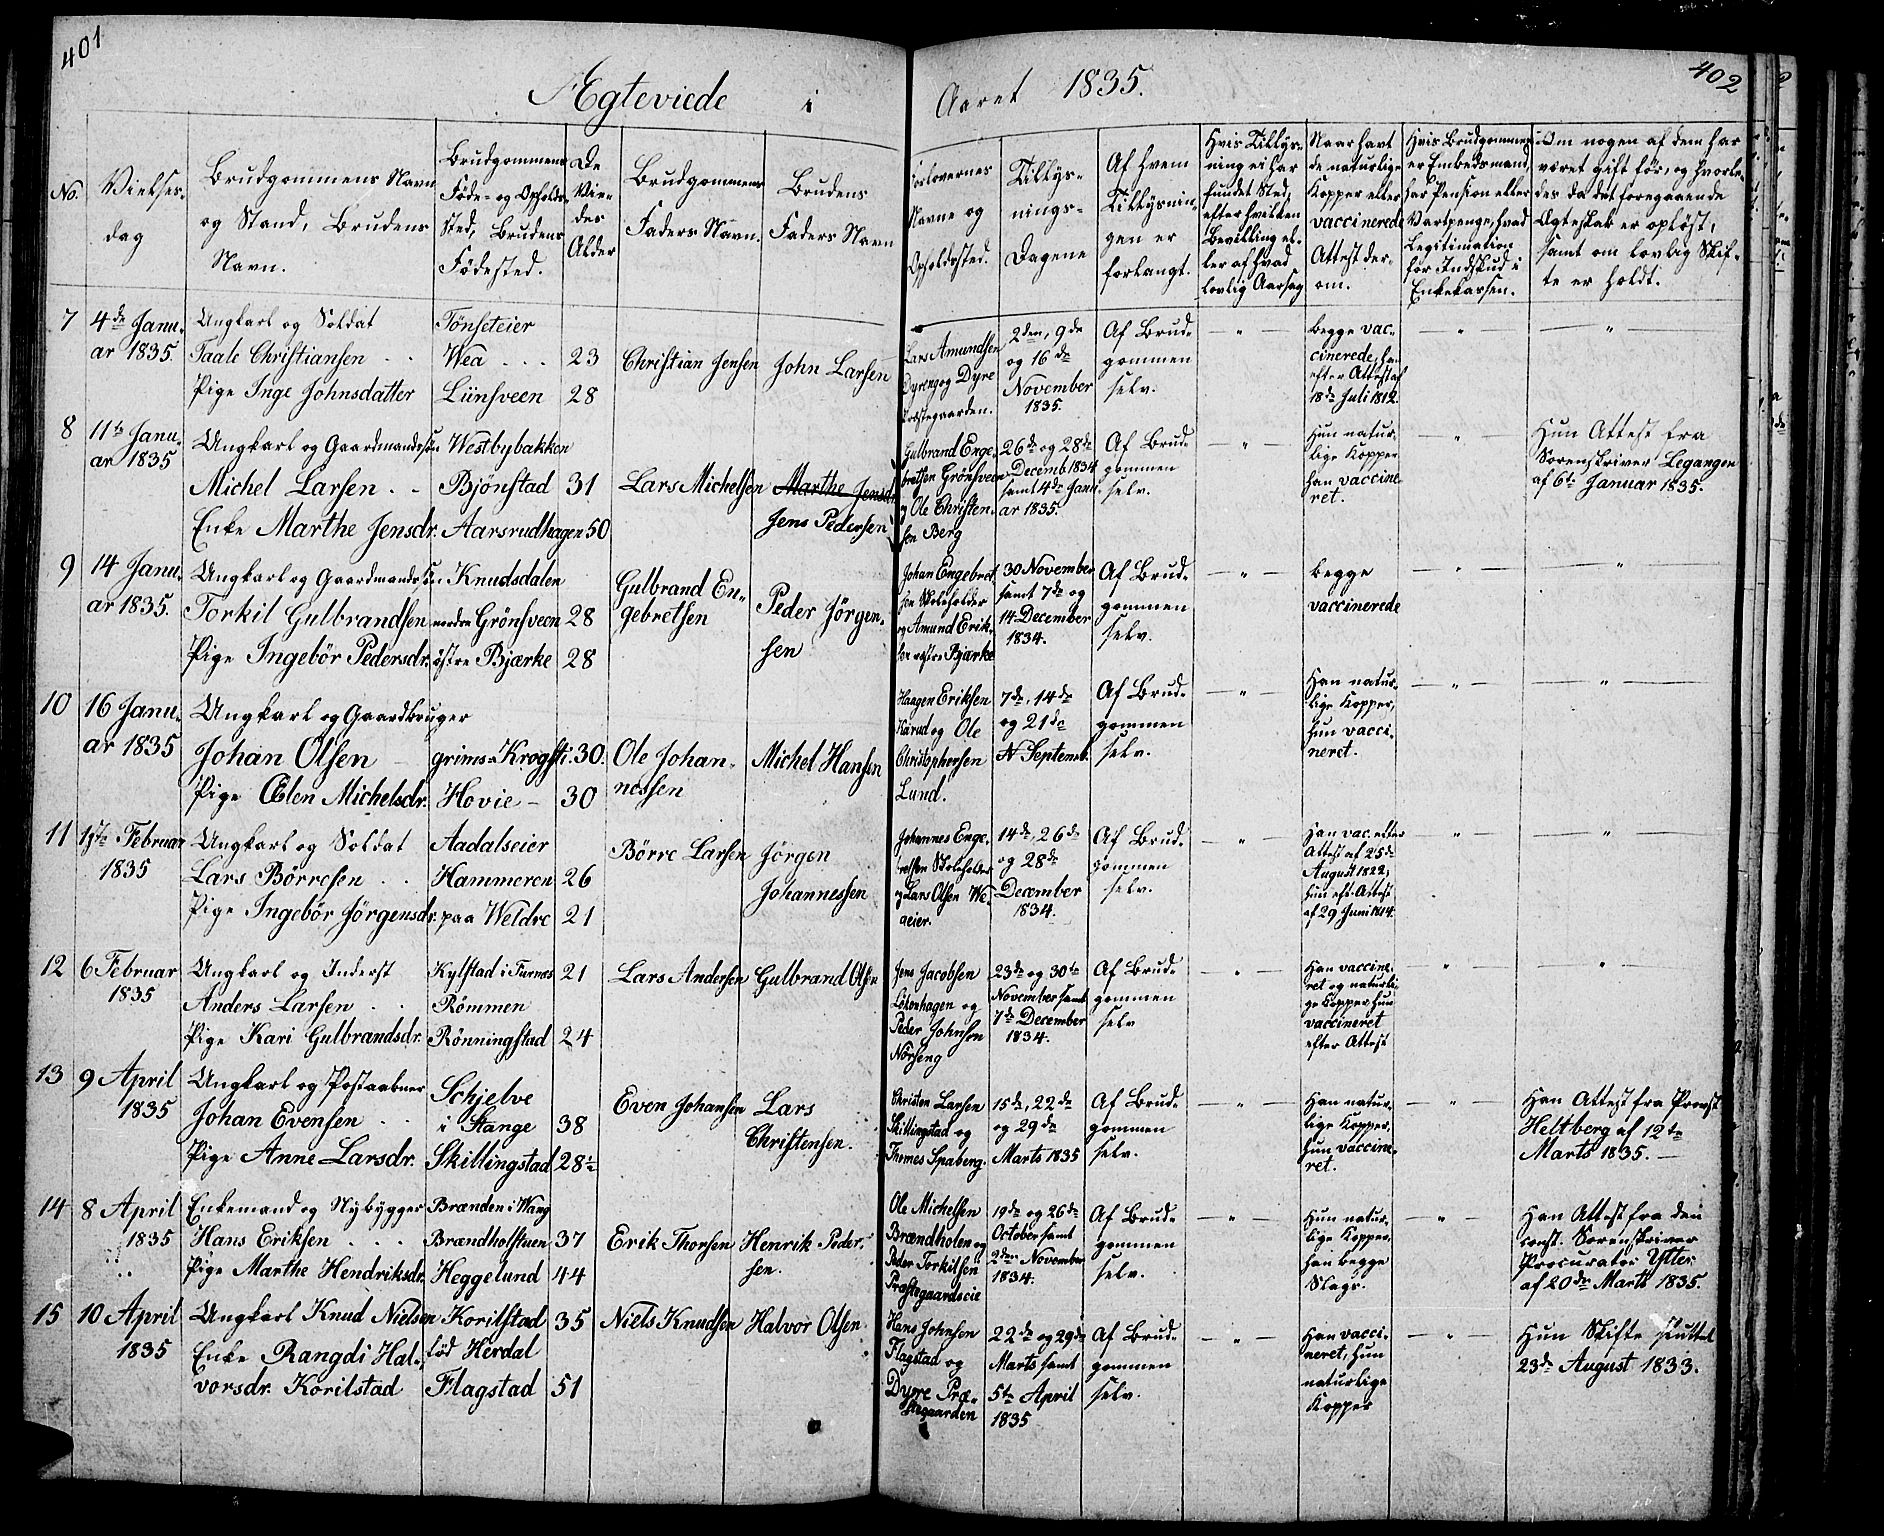 401
402
Ægteviede i
Aaret 1835.
No.
Vielses-
dag
Brudgommens Navn
og Stand, Brudens
Navn.
Brudgommens
Føde- og Opholds-
sted, Brudens
Fødested.
De
Vie-
des
Alder
Brudgommens
Faders Navn.
Brudens
Faders Navn
Forlovernes
Navne og
Opholdssted.
Tillys-
nings-
Dagene
Af hvem
Tillysnin-
gen er
forlangt.
Hvis Tillys-
ning ei har
fundet Sted,
efter hvilken
Bevilling el-
ler af hvad
lovlig Aarsag
Naar havt
de naturlige
Kopper eller
vaccinerede
Attest der-
om.
Hvis Brudgommen
er Embedsmand,
har Pension eller
Vartpenge, hvad
Legitimation
for Indskud i
Enkekassen.
Om nogen af dem har
været gift før, og hvorle-
des da det foregaaende
Ægteskab er opløst,
samt om lovlig Skif-
te er holdt.
7
4de Janu-
ar 1835.
Ungkarl og Soldat
Taale Christiansen
Pige Inge Johnsdatter
Tønseteier
Wea
Liinsveen
23
28
Christian Jensen
John Larsen
Lars Amundsen
Dyreng og Dyre
Præstegaarden.
2den, 9de
og 16de
November
1835.
Af Brud-
gommen
selv.
"
begge vac-
cinerede, han
efter Attest af
18de Juli 1812.
"
"
8
11te Janu-
ar 1835
Ungkarl og Gaardmandssøn
Michel Larsen
Enke Marthe Jensdr.
Westbybakken
Bjønstad
Aarsrudhagen
31
50
Lars Michelsen
Marthe Jensd
Jens Pedersen
Gulbrand Enge-
bretsen Grønsveen
og Ole Christen-
sen Berg
26de og 28de
Decemb. 1834
samt 4de Janu-
ar 1835.
Af Brud-
gommen
selv.
"
Hun natur-
lige Kopper
han vaccine-
ret.
"
Hun Attest fra
Sorenskriver Legangen
af 6te Januar 1835.
9
14 Janu-
ar 1835.
Ungkarl og Gaardmandssøn
Torkil Gulbrandsen
Pige Ingebør Pedersdr.
Knudsdalen
nordre Grønsveen
østre Bjærke
28
28
Gulbrand En-
gebretsen
Peder Jørgen-
sen
Johan Engebret
sen Skoleholder
og Amund Erik-
sen østre Bjærke
30 November
samt 7de og
14 December
1834.
Af Brud-
gommen
selv.
"
begge
vaccinerede
"
"
10
16 Janu-
ar 1835
Ungkarl og Gaardbruger
Johan Olsen
Pige Œlen Michelsdr.
grims-Krogsti
Hovie
30.
30
Ole Johan-
nessen
Michel Hansen
Haagen Eriksen
Kärud og Ole
Christophersen
Lund.
7de, 14de
og 21de
Septemb.
Af Brud-
gommen
selv.
"
Han natur-
lige Kopper,
hun vacci-
neret.
"
"
11
Februar
1835
Ungkarl og Soldat
Lars Børresen
Pige Ingebør Jørgensdr.
Aadalseier
Hammeren
paa Weldre
26
21
Børre Larsen
Jørgen
Johannessen
Johannes Enge-
bretsen Skoleholder
og Lars Olsen We-
aeier.
14de, 26de
og 28de
December
1834.
Af Brud-
gommen
selv.
"
Han vac. efter
Attest af 25de
August 1822,
hun eft. Attest
af 29 Juni 1814.
"
"
12
6 Februar
1835
Ungkarl og Inderst
Anders Larsen
Pige Kari Gulbrandsdr.
Kylstad i Furnæs
Rømmen
Rønningstad
21
24
Lars Andersen
Gulbrand Olsen
Jens Jacobsen
Likenhagen og
Peder Johnsen
Nørseng
23de og 30te
November samt
7de December
1834.
Af Brud-
gommen
selv
"
Han vaccine-
ret og naturli-
ge Kopper, hun
vaccineret
efter Attest
"
"
13
9 April
1835
Ungkarl og Postaabner
Johan Evensen
Pige Anne Larsdr.
Schjelve
i Stange
Skillingstad
38
28½
Even Johansen
Lars
Christensen.
Christen Larsen
Skillingstad og
Thomes Spaberg.
15de, 22de
og 29de
Marts 1835
Af Brud-
gommen
selv.
"
Han natur-
lige Kopper,
hun vaccine-
ret.
"
Han Attest fra Provst
Heltberg af 12te
Marts 1835.
14
8 April
1835
Enkemand og Nybygger
Hans Eriksen
Pige Marthe Hendriksdr.
Brænden i Wang
Brændholstuen
Heggelund
37
44
Erik Thorsen
Henrik Peder-
sen.
Ole Michelsen
Brændholen og
Peder Torkilsen
Præstegaardseie
19de og 26de
October samt
2den November
1834.
Af Brud-
gommen
selv.
"
Hun natur-
lige Kopper,
han begge
Slags.
"
Han Attest fra den
const. Sorenskriver
Procurator Ytter
af 20de Marts 1835.
15
10 April
1835
Ungkarl Knud Nielsen
Enke Rangdi Hal-
vorsdr. Korilstad
Korilstad
fød Herdal
Flagstad
35
51
Niels Knudsen
Halvor Olsen
Hans Johnsen
Flagstad og
Dyre Præ-
stegaarden
22de og 29de
Marts samt
5te April
1835
Af Brud-
gommen
selv.
"
Han vacci-
neret, hun
naturlige
Kopper
"
Hun Skifte sluttet
23de August 1833.